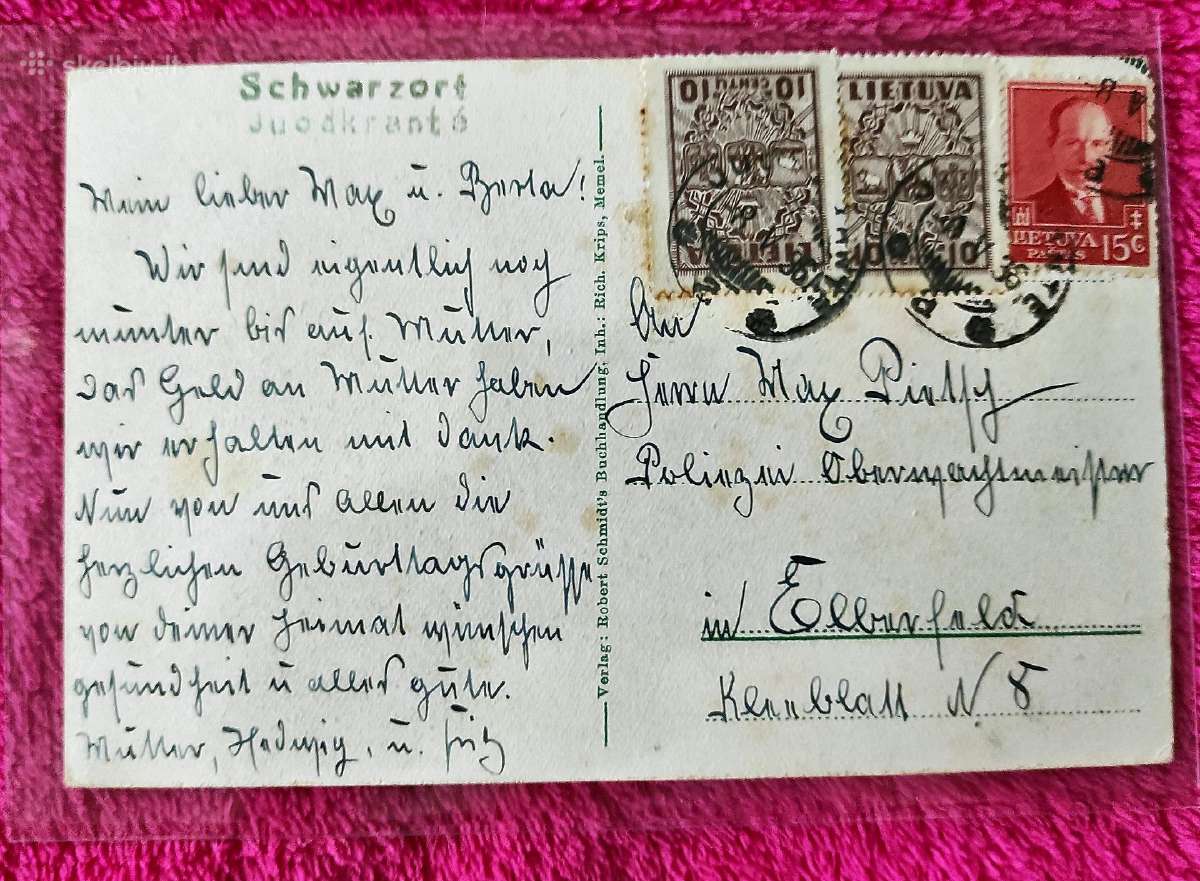 skelbiu.lt
Schwarzort
Juodkrantė
Mein lieber Max u. Berta!
Wir sind eigentlich noch
munter bis auf Mutter,
das Geld an Mutter haben
wir erhalten mit Dank.
Nun von uns allen die
herzlichen Geburttagsgrüsse
von deiner Heimat wünschen
gesundheit u alles gute.
Mutter, Hedwig, u. Fritz
Verlag: Robert Schmidt's Buchhandlung, Inh.: Rich. Krips, Memel.
10 CENTŲ 10
LIETUVA
LIETUVA
10 10
LIETUVA
15c
An
Herrn Max Pietsch
Polizei Oberwachtmeister
in Elberfeld
Kleeblatt N 8